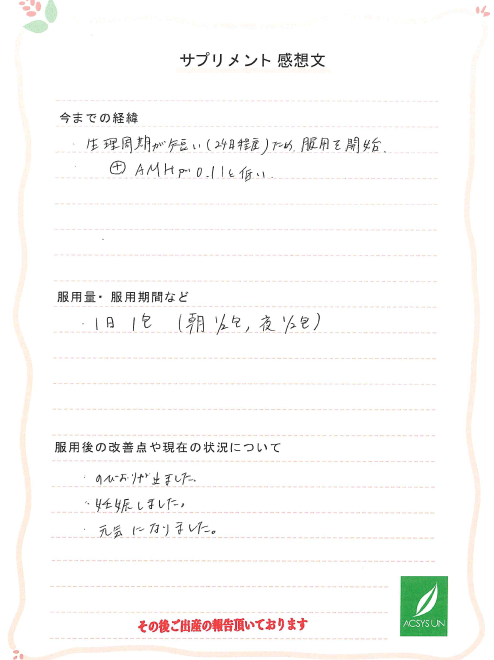 サプリメント 感想文
今までの経緯
・生理周期が短い(24日程度)ため、服用を開始。
・⊕ AMHが0.11と低い.
服用量・服用期間など
・1日 1包 (朝 1/2包, 夜 1/2包)
服用後の改善点や現在の状況について
・のぼりが止ました。
・妊娠しました。
・元気になりました。
その後ご出産の報告頂いております
ACSYSUN